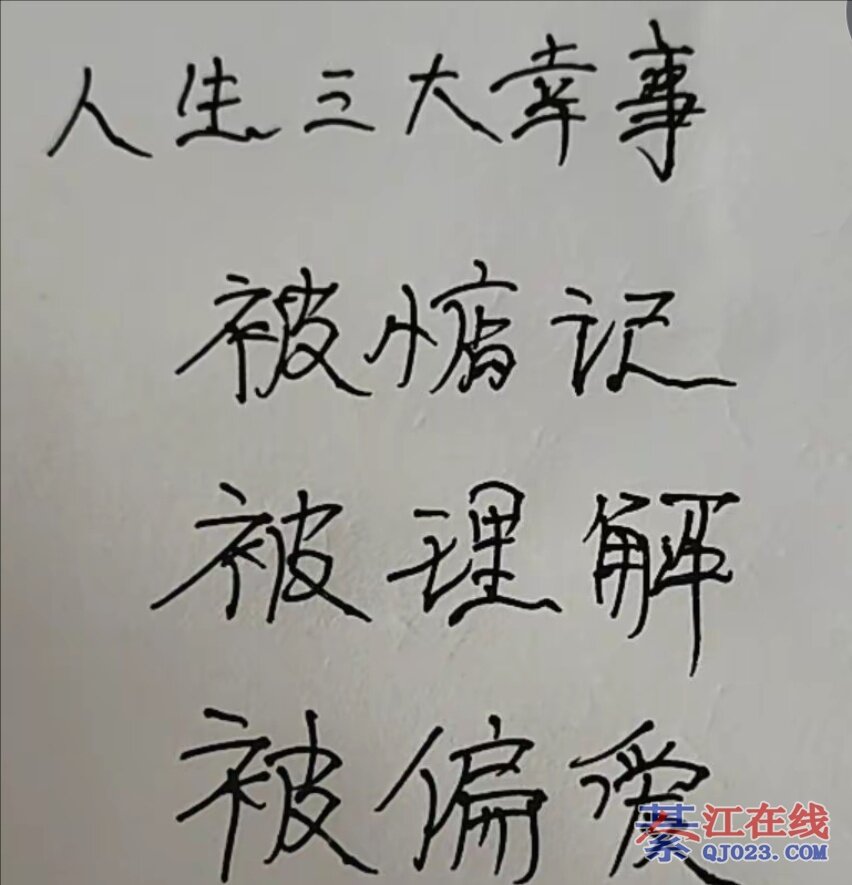 人生三大幸事
被惦记
被理解
被偏爱
綦江在线
QJ023.COM